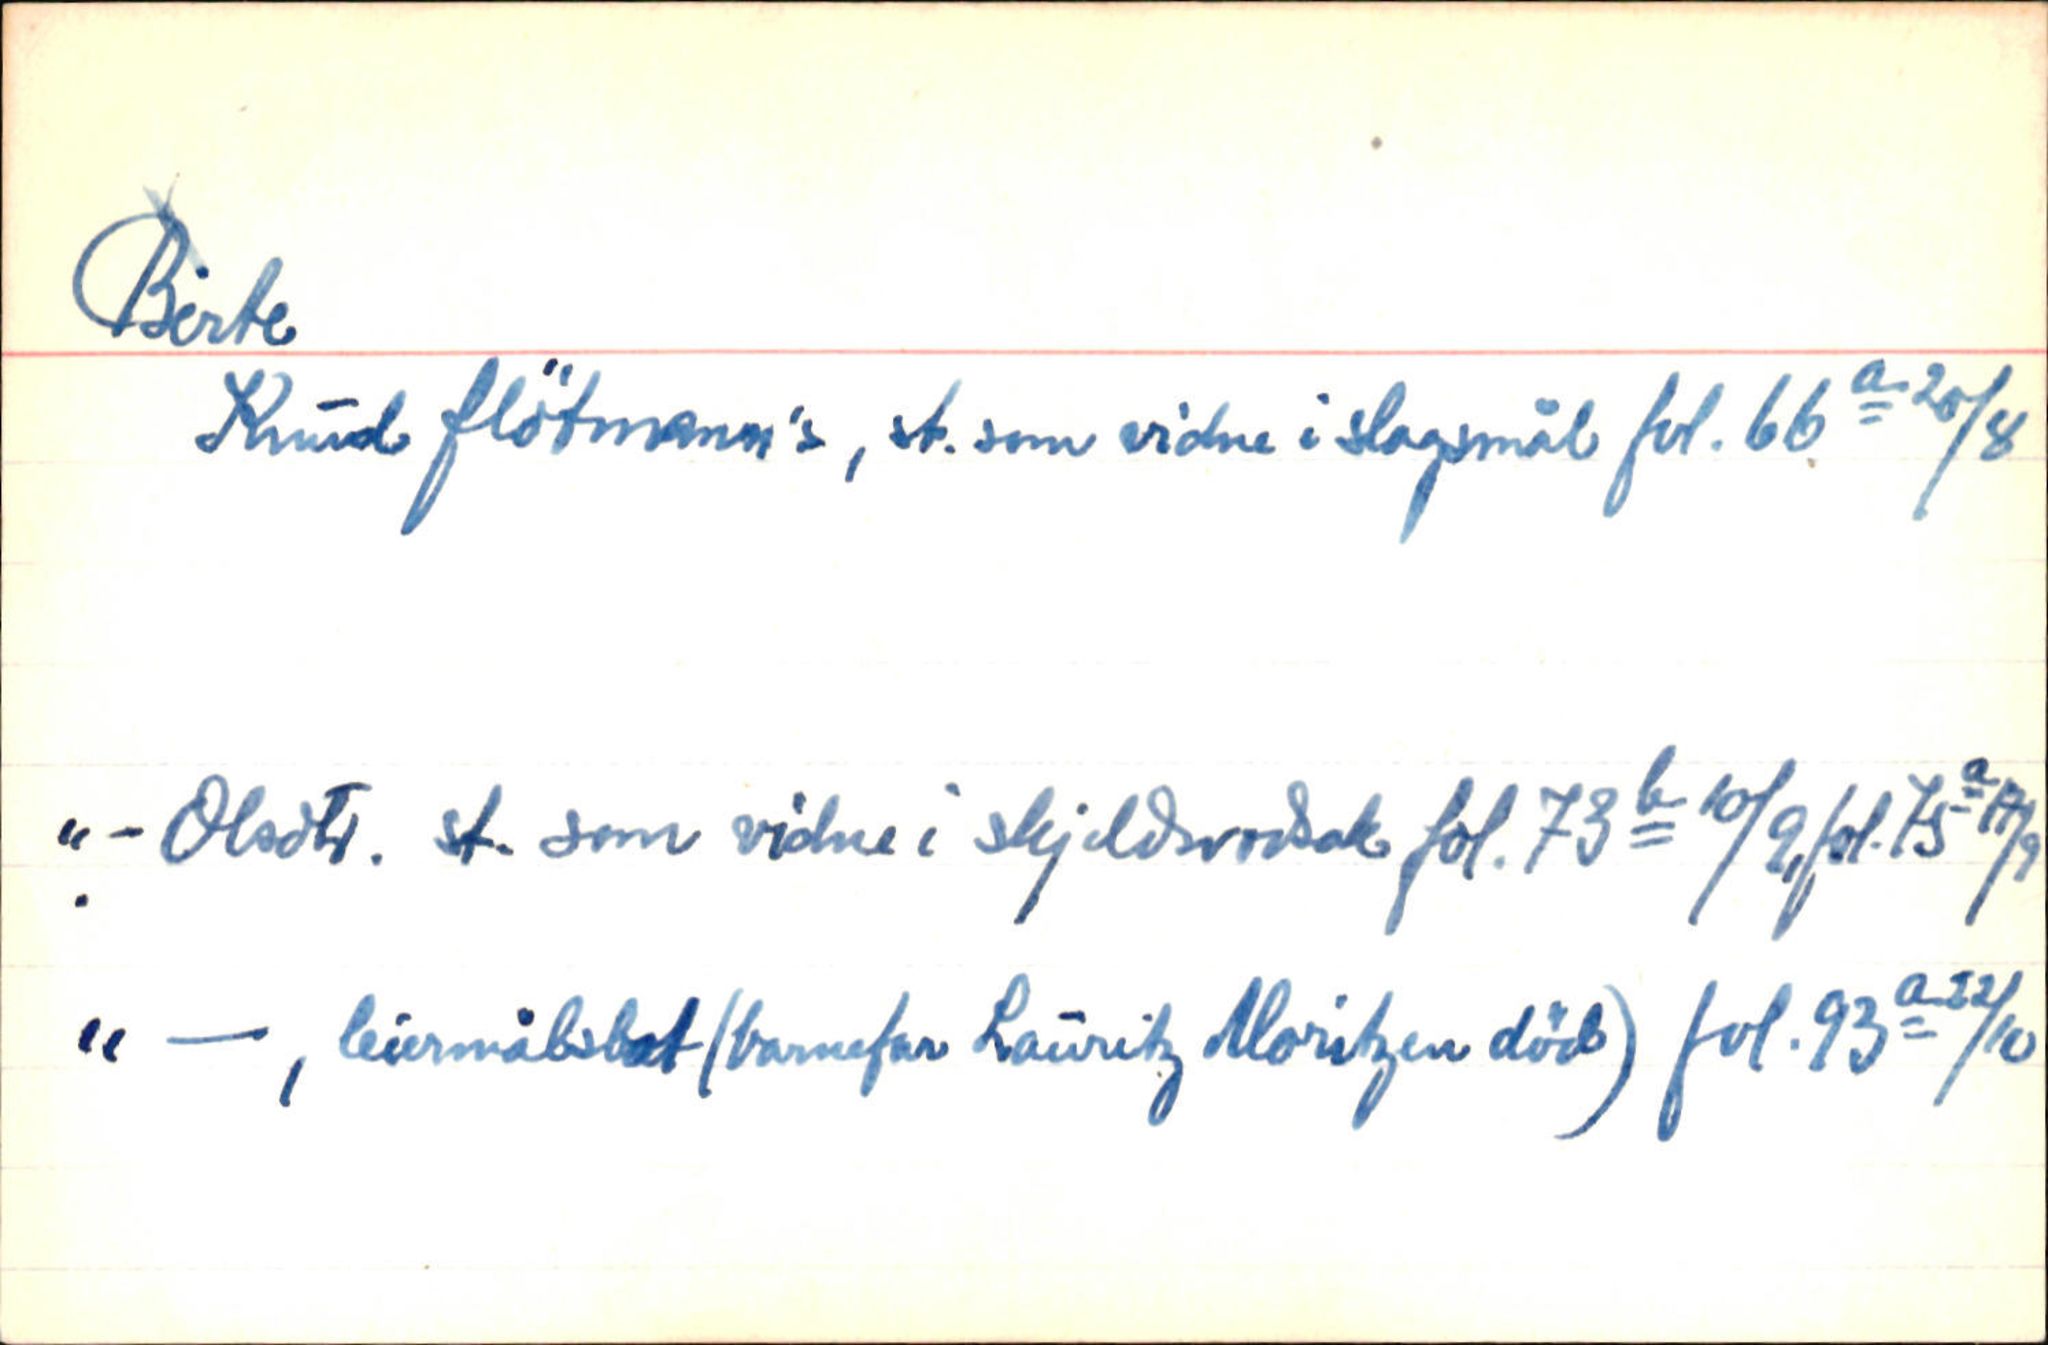 Birte
Knud flötmann's, st. som vidne i slagsmål fol. 66 a 20/8
"- Olsdtr. st. som vidne i skjeldsordsak fol. 73 b 10/9, fol. 75 a 17/9
" —, leiermålsbot (barnefar Lauritz Moritzen död) fol. 93 a 22/10